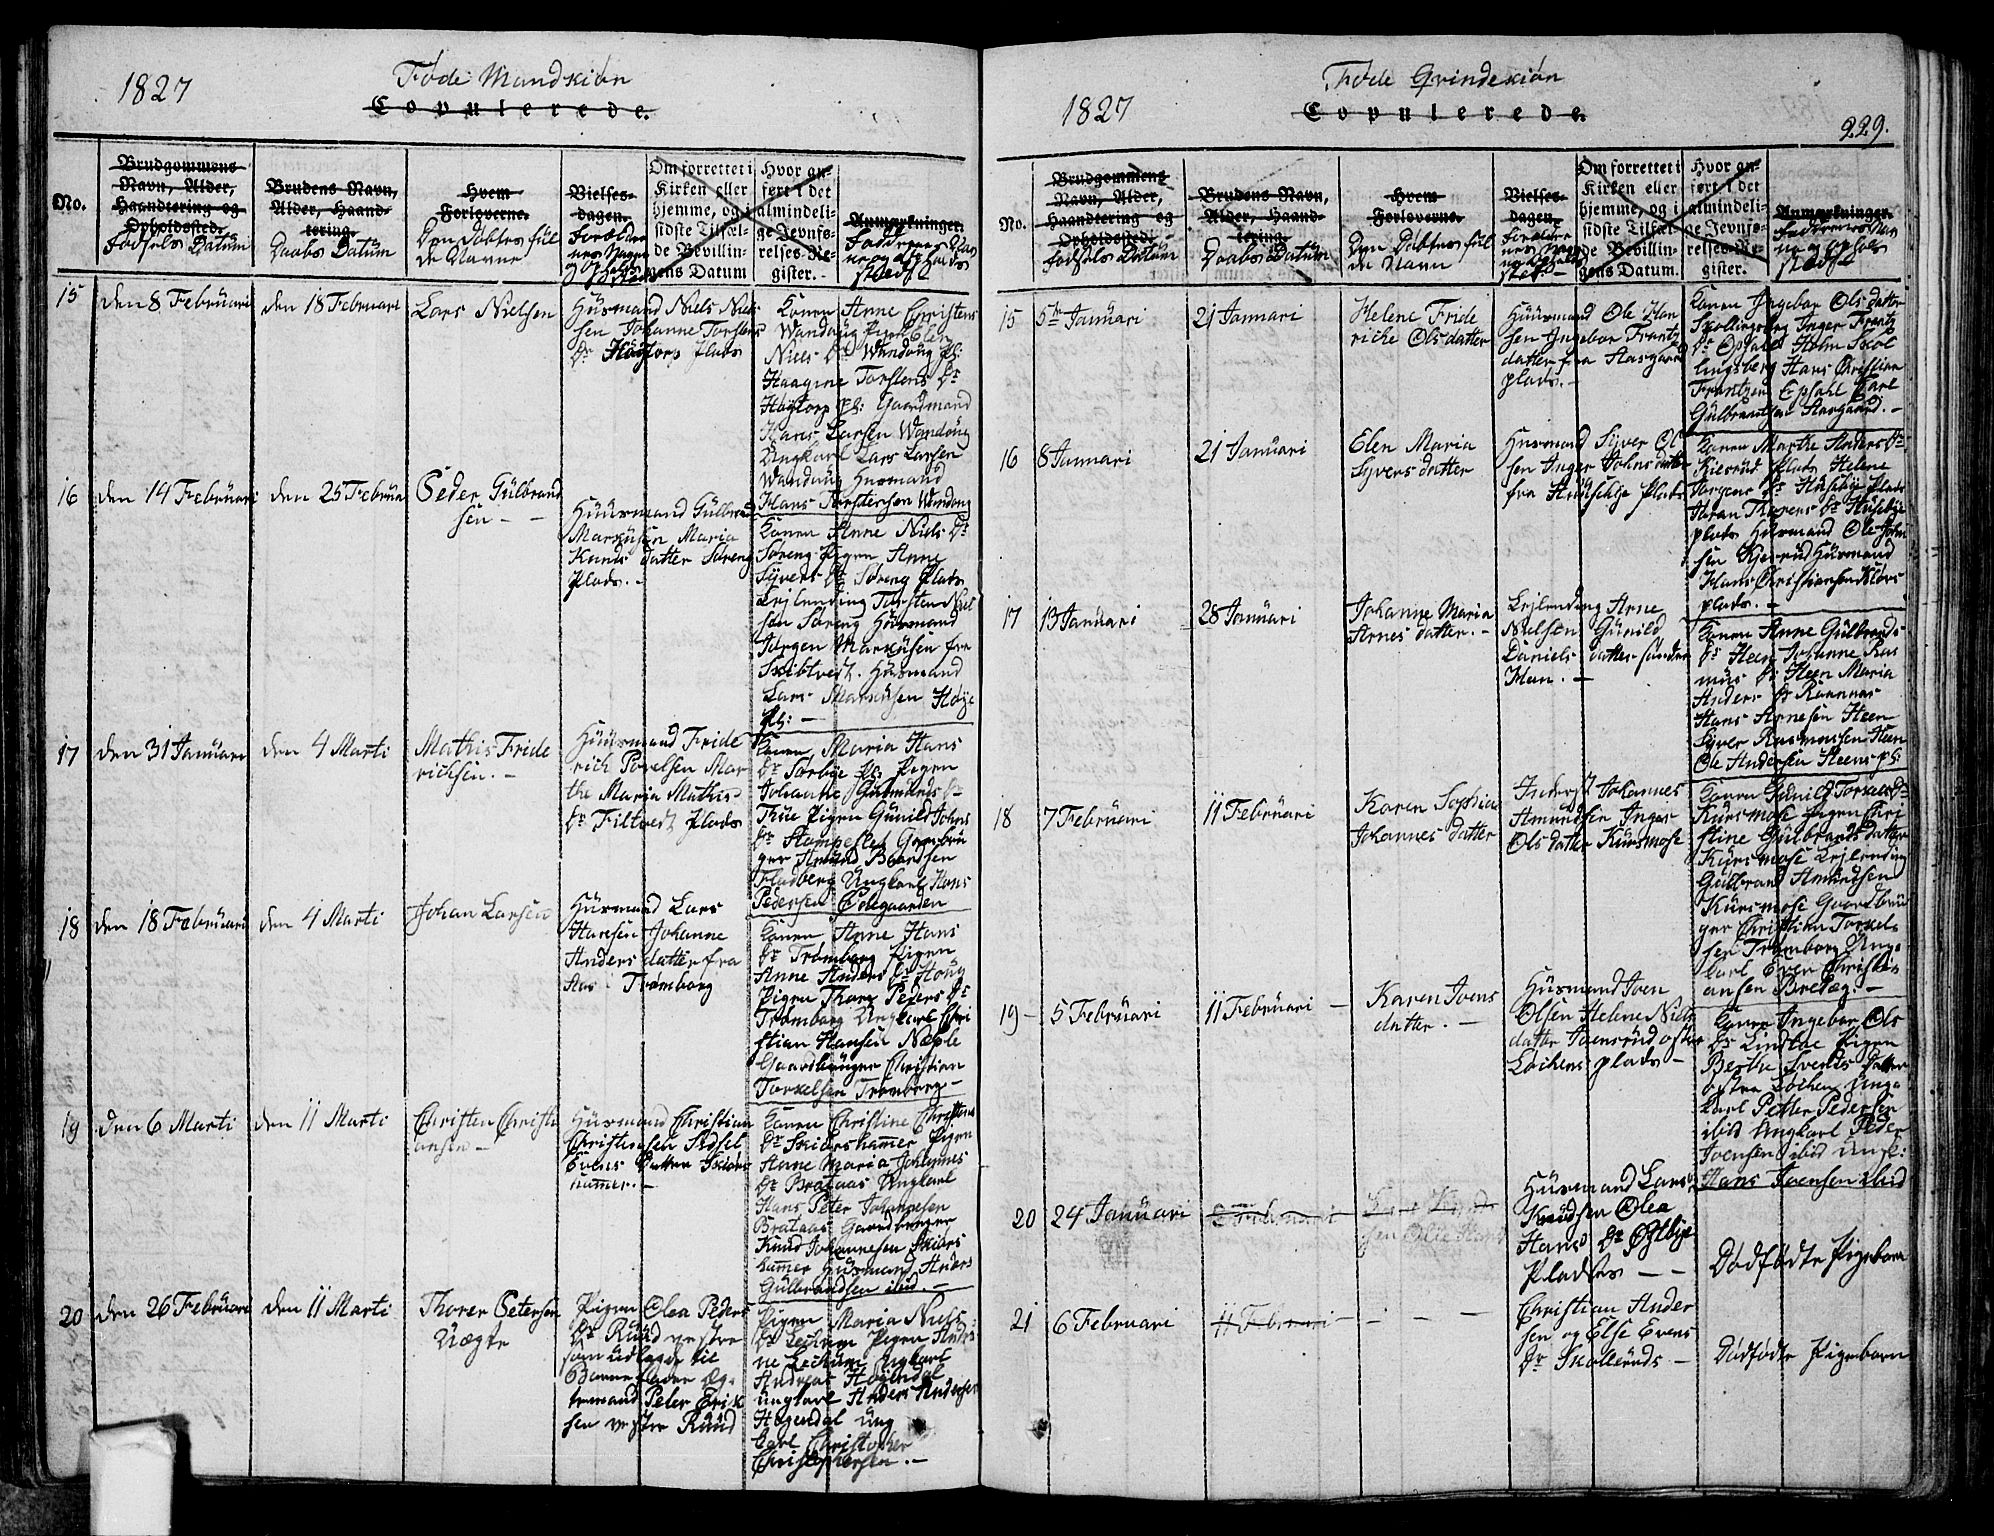 1827
Føde Mandkiøn
Copulerede.
No.
Brudgommens Navn, Alder, Haandtering og Opholdssted.
Fødsels Datum
Brudens Navn, Alder, Haandtering.
Daabs Datum
Hvem Forloverne.
Den Døbtes fulde Navne
Vielses-dagen.
Forældrenes Navne og Opholdssted
Om forrettet i Kirken eller hjemme, og i sidste Tilfælde Bevillingens Datum
Hvor anført i det almindelige Jevnførelses-Register.
Anmærkninger.
Faddernes Navne og Opholdsstæd
15
den 8 Februari
den 18 Februari
Lars Nielsen
Huusmand Niels Niel-
sen Johanne Torstens
Dr Høytorp plads
Konen Anne Christens
Wandoug Pigen Elen
Niels Dr Wandoug pl:
Haagine Torstens Dr
Høytorp pl: Gaardmand
Hans Larsen Wandoug
Ungkarl Lars Larsen
Wandoug Husmand
Hans Torstersen Wandoug
16
den 14 Februari
den 25 Februa
Peder Gulbrand
sen - -
Huusmand Gulbrand
Markusen Maria
Knuds datter Søreng
plads. -
Konen Anne Niels Dr
Søreng Pigen Anne
Syvers Dr Søreng Plads
Lejlending Torsten Niel
sen Søreng Huusmand
Jørgen Markusen fra
Skibtvedt. Huusmand
Lars Markusen Høye
pl: -
17
den 31 Januari
den 4 Marti
Mathis Fride
richsen. -
Huusmand Fride
rich Povelsen Mar
the Maria Mathis-
Dr Filtvedt Plads
Konen Maria Hans
Dr Sørbye pl: Pigen
Johanne Gulmunds D-
Thue Pigen Gunild Johns
Dr Stampeslet Gaardbru
ger Amund Baardsen
Fladberg Ungkarl Hans
Pedersen Ødegaarden
18
den 18 Februari
den 4 Marti
Johan Larsen
Husmand Lars
Hansen Johanne
Anders datter fra
Aas - Trømborg
Konen Anne Hans
Dr Trømborg Pigen
Anne Anders Dr Houg
Pigen Thore Peders Dr
Trømborg Ungkarl Chri
stian Hansen Næple
Gaardbruger Christian
Torkelsen Trømborg -
19
den 6 Marti
den 11 Marti
Christen Christi
ansen -
Husmand Christian
Christensen Sidsel
Evens Datter Skiørs
hammer. -
Konen Christine Christens
Dr Skiørshammer Pigen
Anne Maria Johannes
Dr Brataas Ungkarl
Hans Peter Johannesen
Brataas Gaardbruger
Knud Johannesen Skiørs
hammer Husmand Anders
Gulbrandsen ibid. -
20
den 26 Februari
den 11 Marti
Thorer Petersen
Uægte
Pigen Olea Peders
Dr Ruud vestre
som udlagde til
Barnefader Æg-
temand Peter Erik
sen vestre Ruud
Pigen Maria Niels
Dr Lechum Pigen Andri
ne Lechum Ungkarl
Andreas Høgendal
ungkarl Anders Andersen
Høgendal Ung
Carl Christopher
Christophersen. -
1827
Føde Qvindekiøn
Copulerede.
229.
No.
Brudgommens Navn, Alder, Haandtering og Opholdssted
Fødsels Datum
Brudens Navn, Alder, Haandtering.
Daabs Datum
Hvem Forloverne.
Den Døbtes ful
de Navn
Vielses-dagen.
Forældrenes Navne og Opholdssted. -
Om forrettet i Kirken eller hjemme, og i sidste Tilfælde Bevillingens Datum.
Hvor anført i det almindelige Jevnførelses-Register.
Anmærkninger.
Faddernes Navne og Opholdsstæd
15
5te Januari
21 Januari
Helene Fride
riche Olsdatter
Huusmand Ole Han
sen Ingebor Frantz
datter fra Aasgaard
plads. -
Konen Ingebor Olsdatter
Skollingsberg Inger Frantz
Dr Opsahl Holm Skol
lingsberg Hans Christian
Frantzen Epsahl Carl
Gulbrandsen Aasgaard. -
16
8 Januari
21 Januari
Elen Maria
Syvers datter
Husmand Syver Ol
sen Inger Johns datter
fra plads
Konen Marthe Anders Dr
Kierrud Plads Helene
Jørgens Dr Husebye Plads
Karen Thorens Dr Husebye
plads Husmand Ole John
sen Kjerrud Husmand
Hans Christiansen Kløvs
plads. -
17
13 Januari
28 Januari
Johanne Maria
Arnes datter. -
Lejlending Arne
Nielsen Gunild
Daniels datter sønder
Heen. -
Konen Anne Gulbrands
Dr Heen Johanne Ras
mus Dr Heen Maria
Anders Dr Raannas
Hans Arnesen Heen
Syver Rasmussen Heen
Ole Andersen Heens pl:
18
7 Februari
11 Februari
Karen Sophia
Johannes datter
Inderst Johannes
Amundsen Inger
Olsdatter Kursmose
Konen Gunild Torkels Dr
Kursmose Pigen Chri
stine Gulbrands datter
Kursmose Lejlending
Gulbrand Amundsen
Kursmose Gaardbru
ger Christian Torkel
sen Trømborg Ung-
karl Even Christi
ansen Bredeg. -
19 -
5 Februari
11 Februari -
Karen Ivens
datter. -
Husmand Iven
Olsen Helene Niels
datter Ivensrud østre
Løchens plads -
Konen Ingebor Ols
Dr Lindtoe Pigen
Berthe Svends Datter
østre Løchen Ung-
karl Petter Pedersen
ibid Ungkarl Peder
Ivensen ibid Ungk:
Hans Ivensen ibid
20
24 Januari
Februari
Huusmand Lars
Knudsen Olea
Hans Dr Østbye
Pladses - -
Dødfødte Pigebarn
21
6 Februari
11 Februari -
- - -
Christian Ander
sen og Else Evens
Dr Skolleruds -
Dødfødte Pigebarn